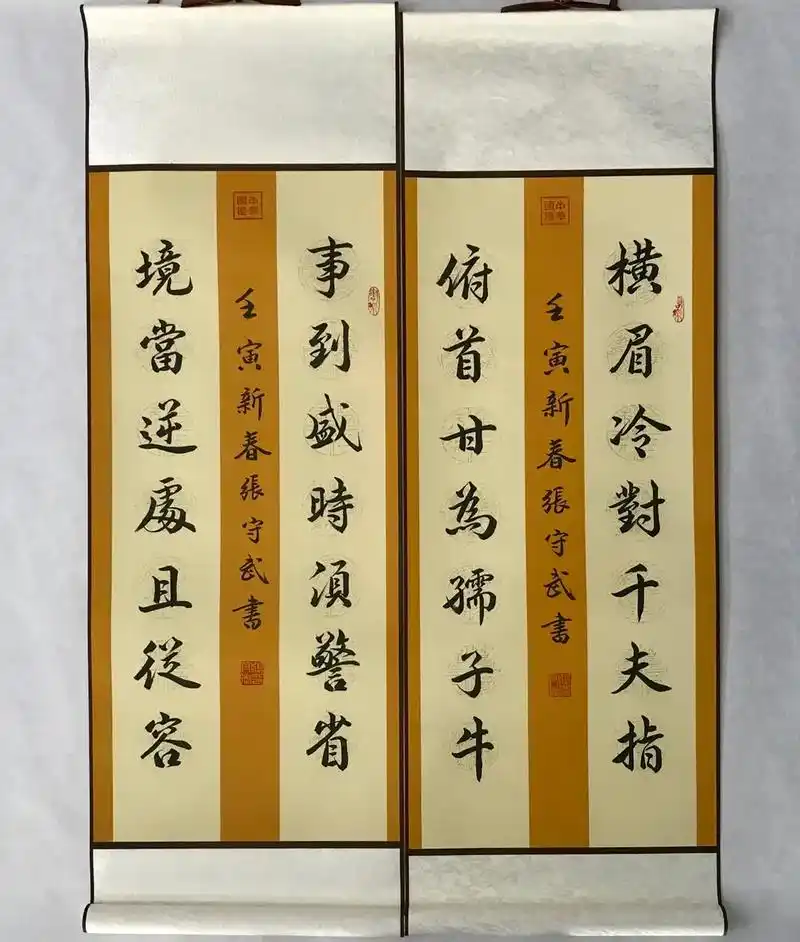 橫眉冷對千夫指
壬寅新春張守武书
俯首甘為孺子牛
事到盛時須警省
壬寅新春張守武书
境當逆處且從容